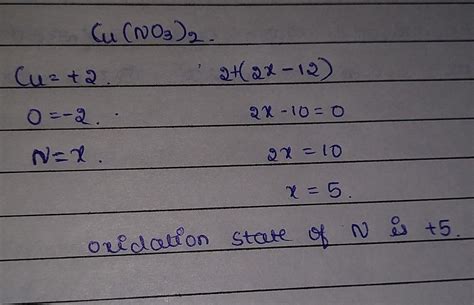 Cu(NO3)2.
Cu = +2. 2+(2x-12)
O = -2. 2x-10=0
N = x. 2x = 10
x = 5.
oxidation state of N is +5.